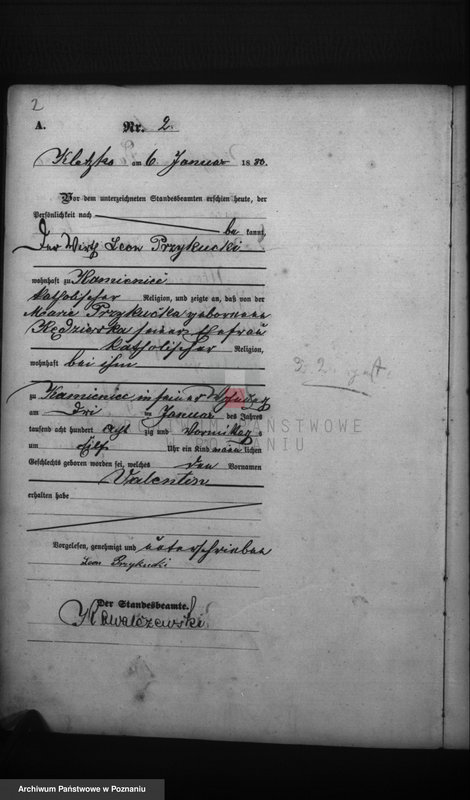 2
A. Nr. 2.
Kletzko am 6. Januar 1880.
Vor dem unterzeichneten Standesbeamten erschien heute, der
Persönlichkeit nach
be kannt,
der Wirth Leon Przykucki
wohnhaft zu Kamienice
katholischer Religion, und zeigte an, daß von der
Marie Przykucka geborenen
Kędzierska seiner Ehefrau
katholischer Religion,
wohnhaft bei ihm
zu Kamienice in seiner Wohnung
am Dri im Januar des Jahres
tausend acht hundert acht zig und Vormittag
um Eilf Uhr ein Kind männ lichen
Geschlechts geboren worden sei, welches den Vornamen
Valentin
erhalten habe
Vorgelesen, genehmigt und unterschrieben
Leon Przykucki
Der Standesbeamte.
Kowalczewski
ARCHIWUM PAŃSTWOWE
W POZNANIU
Archiwum Państwowe w Poznaniu